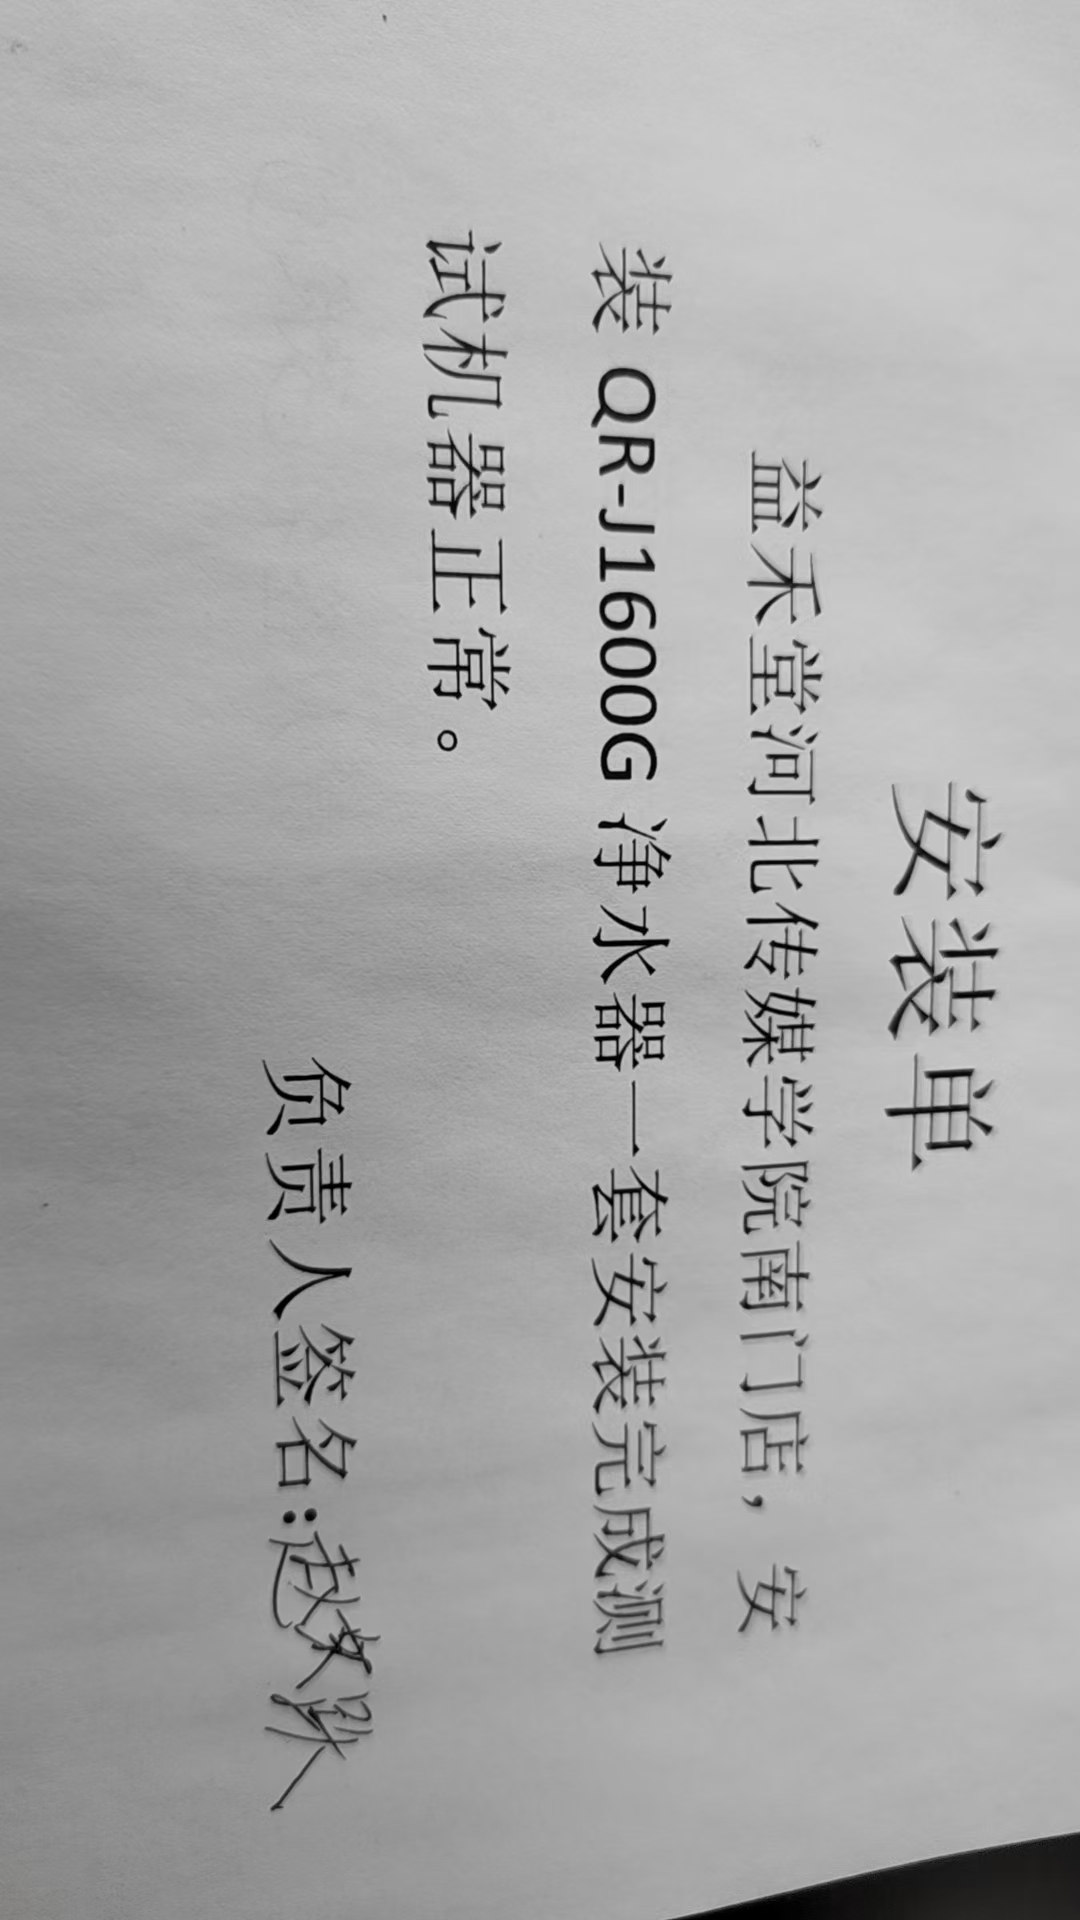 安装单
益禾堂河北传媒学院南门店，安
装 QR-J1600G 净水器一套安装完成测
试机器正常。
负责人签名:赵